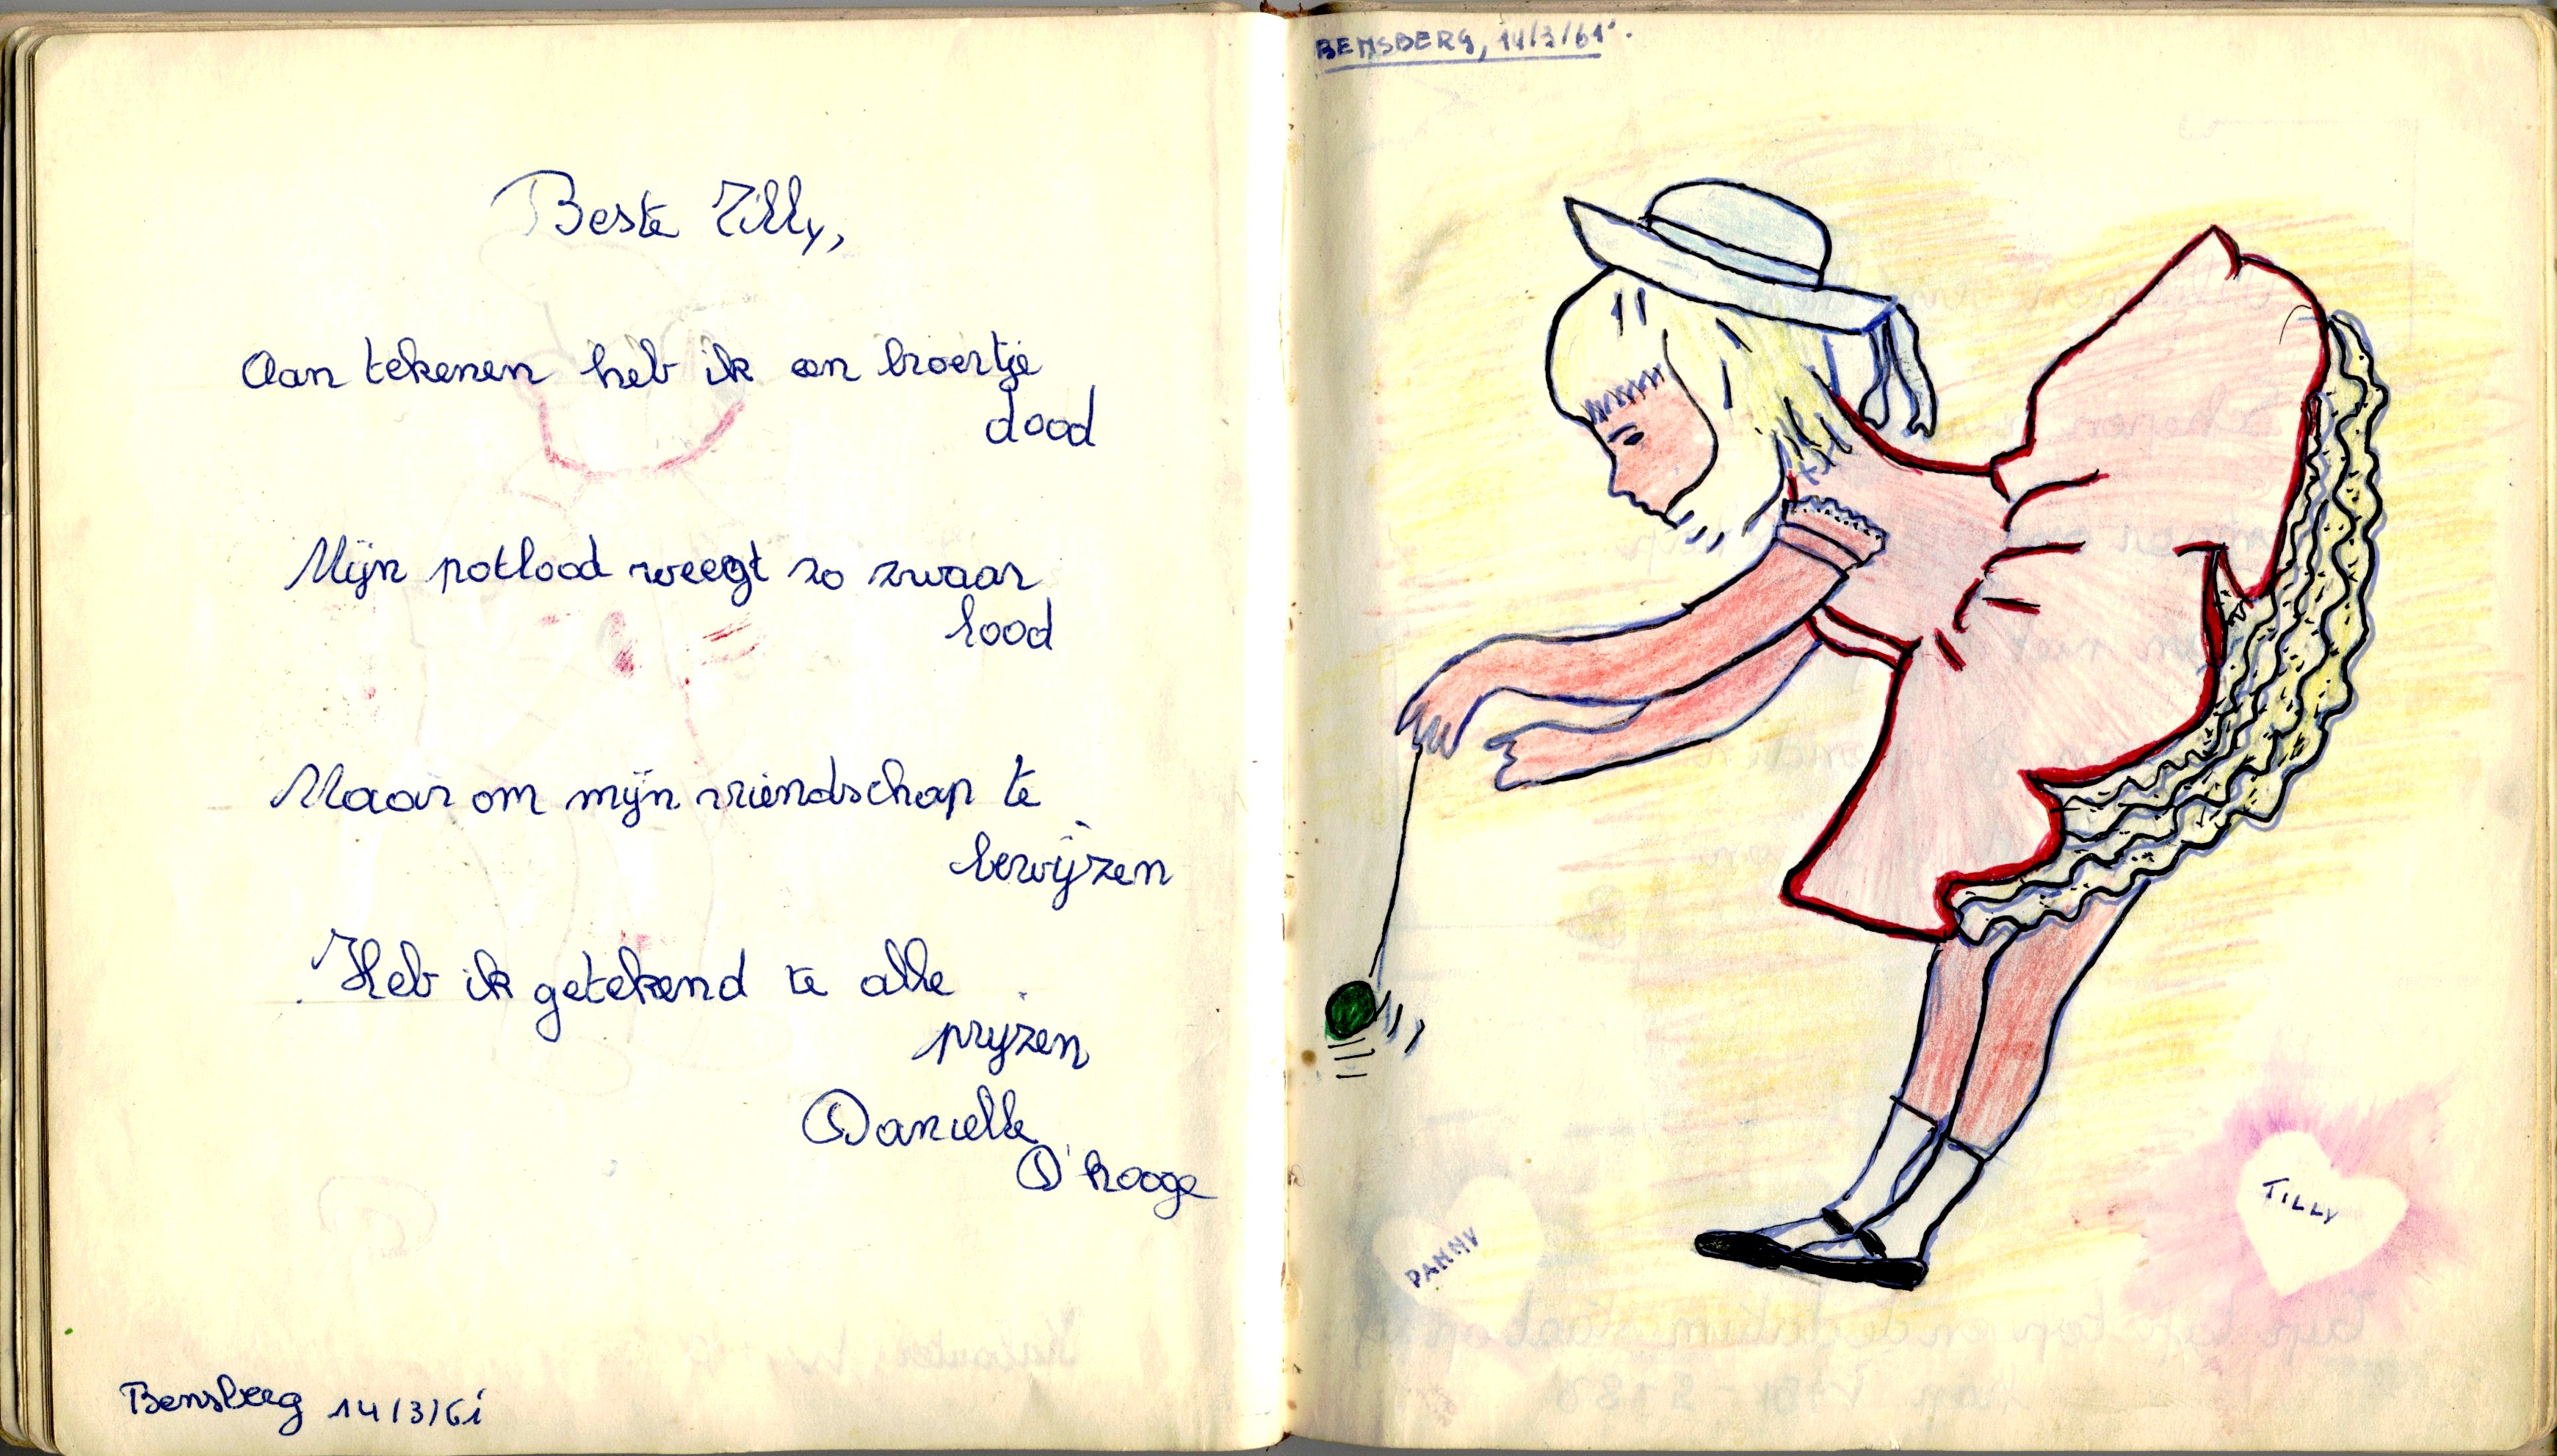 Beste Tilly,
Aan tekenen heb ik een broertje
dood
Mijn potlood weegt zo zwaar
lood
Maar om mijn vriendschap te
bewijzen
Heb ik getekend te alle
prijzen
Danielle
D'hooge
Bensberg 14/3/61
BENSBERG, 14/3/61.
DANNY
TILLY